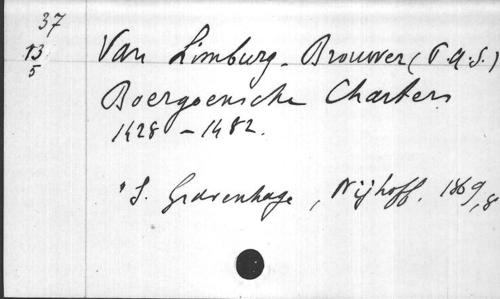 37
13
5
Van Limburg-Brouwer (P.A.S.)
Boergoensche Charters
1428-1482.
's Gravenhage, Nijhoff. 1869, 8